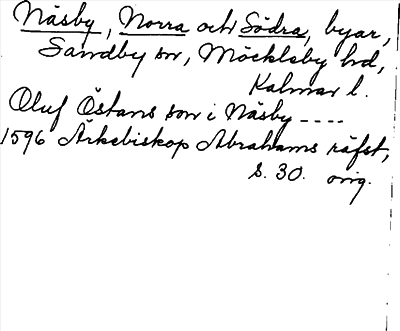 Näsby, Norra och Södra, byar,
Sandby sn, Möckleby hd,
Kalmar l.
Oluf Östans son i Näsby ----
1596 Ärkebiskop Abrahams räfst,
s. 30. orig.